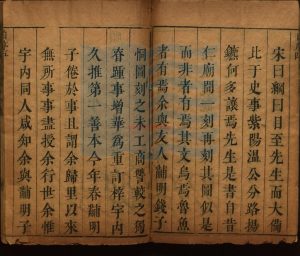 宋曰綱曰目至先生而大備
比于史事紫陽溫公分路揚
鑣何多讓焉先生是書自昔
仁廟間一刻再刻其圖似是
而非者有其文烏焉魯魚
者有焉余與友人黼明錢子
恫圖刻之未工商讐較之獨
眷踵事增華爲重訂梓宇內
久推第一善本今年春黼明
子倦於事且謂余歸里以來
無所事事盡授余行世余惟
宇內同人咸知余與黼明子